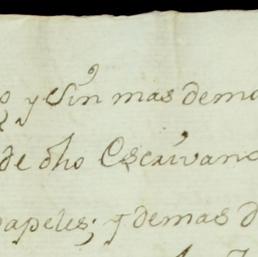 y Sin mas demo
de dho Escrivano
papeles; y demas d